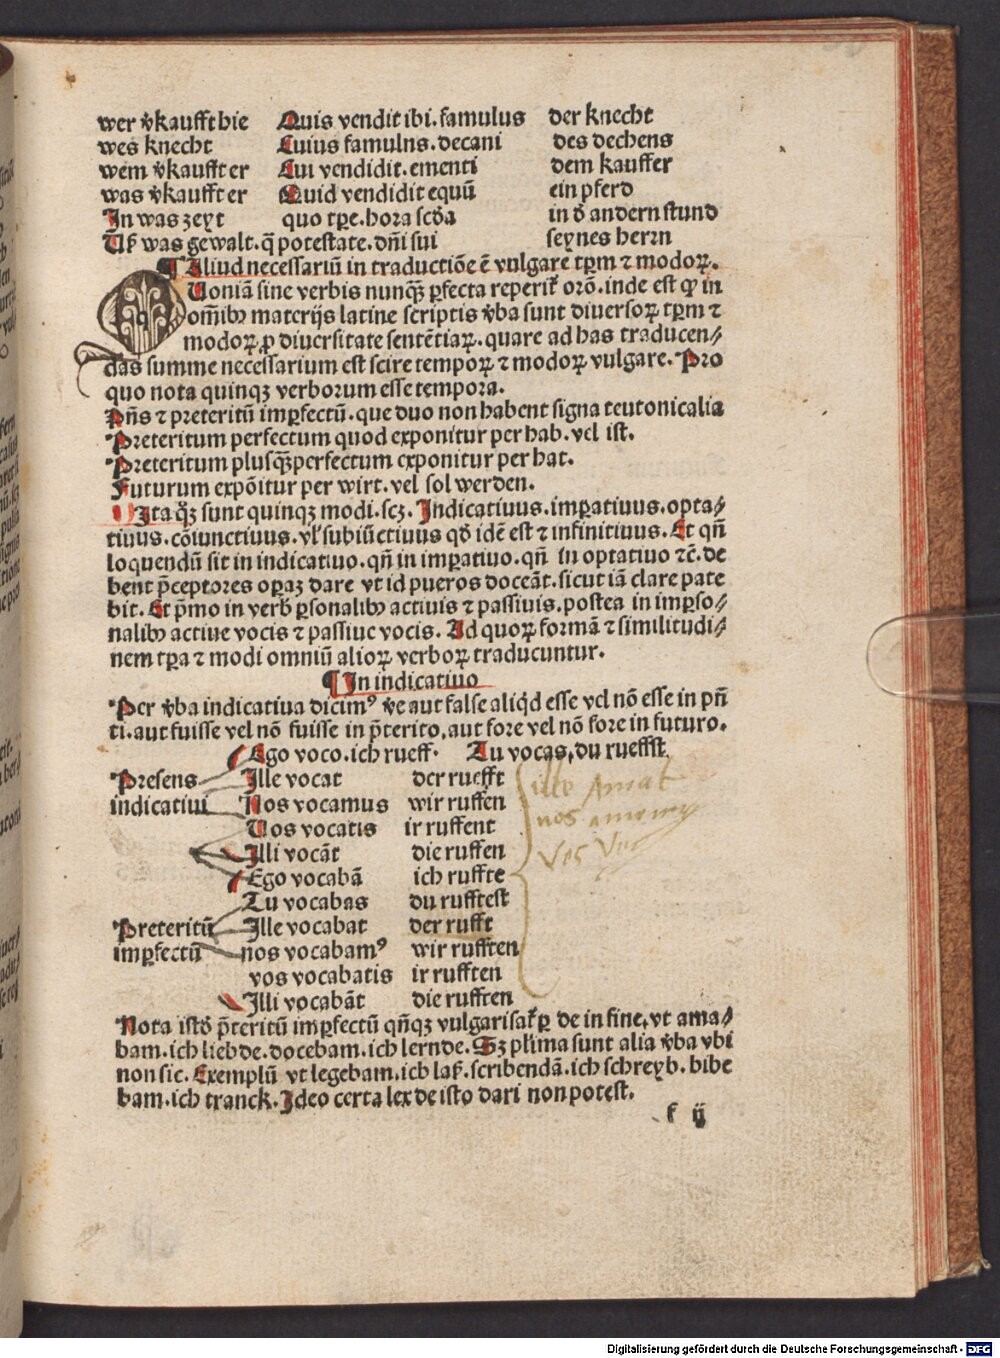 wer v̄kaufft hie Quis vendit ibi. famulus der knecht
wes knecht Cuius famulns. decani des dechens
wem v̄kaufft er Cui vendidit. ementi dem kauffer
was v̄kaufft er Quid vendidit equū ein pferd
In was zeyt quo tꝑe. hora scḋa in ḋ andern stund
Uß was gewalt. q̄ potestate. dn̄i sui seynes herrn
¶ Aliud necessariū in traductiōe ē vulgare tꝑm ⁊ modoꝝ.
Uoniā sine verbis nunqꝫ ꝑfecta reperit᷑ orō. inde est ꝙ in
om̄ibꝰ materijs latine scriptis v̄ba sunt diuersoꝝ tꝑm ⁊
modoꝝ ꝓ diuersitate sentētiaꝝ. quare ad has traducen⸗
das summe necessarium est scire tempoꝝ ⁊ modoꝝ vulgare. Pro
quo nota quinqꝫ verborum esse tempora.
Pn̄s ⁊ preteritū imꝑfectū. que duo non habent signa teutonicalia
Preteritum perfectum quod exponitur per hab. vel ist.
Preteritum plusqꝫperfectum exponitur per hat.
Futurum expōitur per wirt. vel sol werden.
Ita qꝫ sunt quinqꝫ modi. scꝫ. Indicatiuus. imꝑatiuus. opta⸗
tiuus. cōiunctiuus. vl᷑ subiūctiuus qḋ idē est ⁊ infinitiuus. Et qn̄
loquendū sit in indicatiuo. qn̄ in imꝑatiuo. qn̄ in optatiuo ⁊c̄. de
bent p̄ceptores oꝑaꝫ dare vt id pueros doceāt. sicut iā clare pate
bit. Et p̄mo in verb᷑ ꝑsonalibꝰ actiuis ⁊ passiuis. postea in imꝑso⸗
nalibꝰ actiue vocis ⁊ passiue vocis. Ad quoꝝ formā ⁊ similitudi⸗
nem tꝑa ⁊ modi omniū alioꝝ verboꝝ traducuntur.
¶ In indicatiuo
Per v̄ba indicatiua dicimꝰ v̄e aut false aliq̇d esse vel nō esse in pn̄
ti. aut fuisse vel nō fuisse in p̄terito, aut fore vel nō fore in futuro.
Ego voco. ich rueff. Tu vocas, du ruefst
Presens Ille vocat der ruefft
indicatiui Nos vocamus wir ruffen
Uos vocatis ir ruffent
Illi vocāt die ruffen
Ego vocabā ich ruffte
Tu vocabas du rufftest
Preteritū Ille vocabat der rufft
imꝑfectū nos vocabamꝰ wir rufften
vos vocabatis ir rufften
Illi vocabāt die rufften
ille Amat
nos
Vos
Nota istḋ p̄teritū imꝑfectū qn̄qꝫ vulgarisat᷑ ꝑ de in fine, vt ama⸗
bam. ich liebde. docebam. ich lernde. Sꝫ pl᷑ima sunt alia v̄ba vbi
non sic. Exemplū vt legebam. ich laß. scribendā. ich schreyb. bibe
bam. ich tranck. Ideo certa lex de isto dari non potest.
f ij
Digitalisierung gefördert durch die Deutsche Forschungsgemeinschaft - DFG